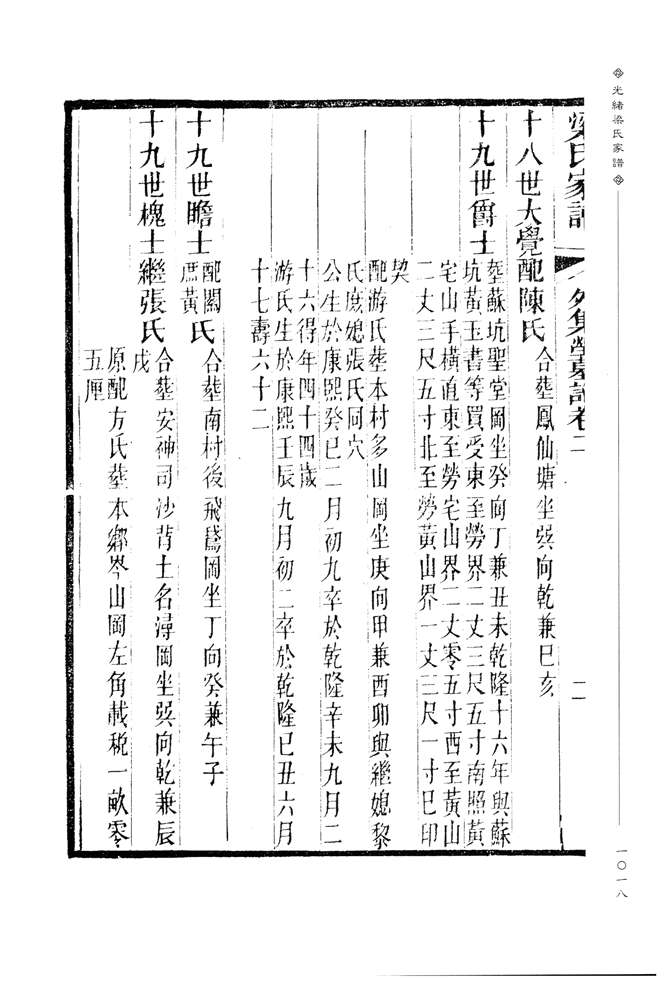 光緒梁氏家譜
一〇一八
梁氏家譜 外集塋墓譜卷二 二
十八世大覺配陳氏 合塟鳳仙塘坐巽向乾兼巳亥
十九世爵士 塟蘇坑聖堂岡坐癸向丁兼丑未乾隆十六年與蘇
坑黃玉書等買受東至勞界二丈三尺五寸南照黃
宅山手橫直東至勞宅山界二丈零五寸西至黃山
二丈三尺五寸北至勞黃山界一丈三尺一寸巳印
契
配游氏塟本村多山岡坐庚向甲兼酉卯與繼媳黎
氏庶媳張氏同穴
公生於康熙癸巳二月初九卒於乾隆辛未九月二
十六得年四十四歲
游氏生於康熙壬辰九月初二卒於乾隆巳丑六月
十七壽六十二
十九世瞻士 配閻 庶黃 氏 合塟南村後飛鵞岡坐丁向癸兼午子
十九世槐士繼張氏 合塟安神司沙背土名潯岡坐巽向乾兼辰
戌
原配方氏塟本鄉岑山岡左角載稅一畝零
五厘